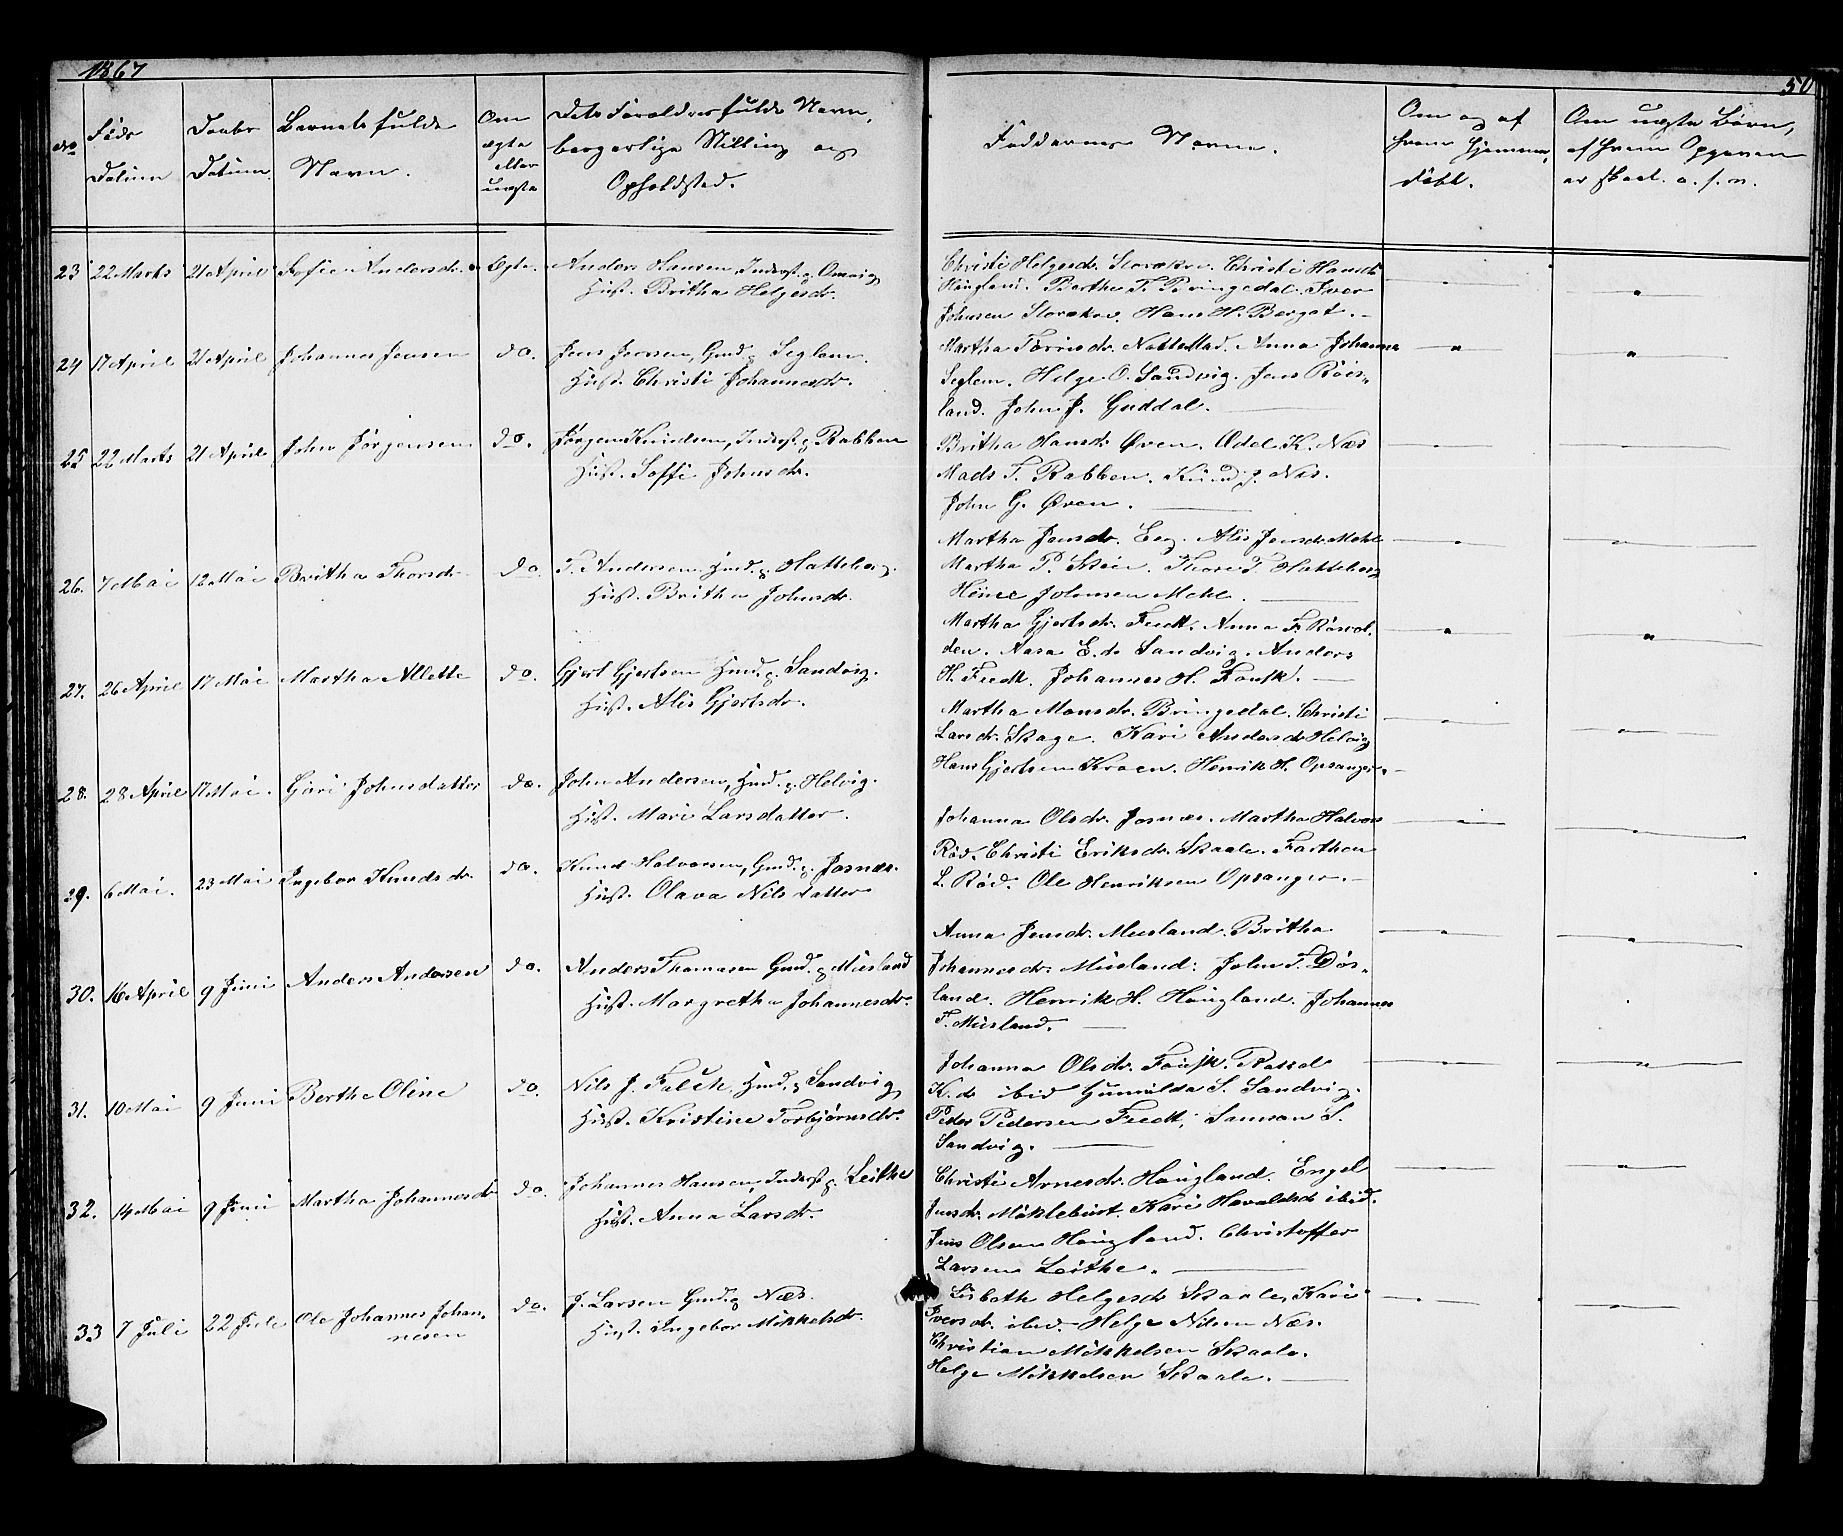 1867
50
No
Føds Datum
Daabs Datum.
Barnets fulde Navn.
Om ægte eller uægte
Dets Forældres fulde Navn, borgerlige Stilling og Opholdsted.
Faddernes Navne.
Om og af hvem hjemmedøbt.
Om uægte Børn, af hvem Opgaven er skeet. o. s. v.
23 22 Marts 21 April Sofie Andersdr. Ægte. Anders Hansen, Inderst. p. Omvig
Hust. Britha Helgesdr.
Christi Helgesdr. Storakre. Christi Hansdr
Haugland. Berthe T. Bringedal. Iver
Johnsen Storakre. Hans H. Berget.
24 17 April 21 April Johannes Jensen do. Jens Jenssen, Gmd. p. Seglem.
Hust. Christi Johannesdr.
Martha Tørrisdr. Nattestad. Anna Johannes
Seglem. Helge O. Sandvig. Jens Røis-
land. John J. Guddal.
25 22 Marts 21 April John Jørgensen do. Jørgen Knudsen, Inderst. p. Rabben
Hust. Soffi Johnsdr.
Britha Hansdr Øren. Ædel K. Næs
Mads T. Rabben. Knud J. Næs.
John G. Øren.
26. 7 Mai 12 Mai Britha Thorsdr do. T. Andersen Hmd. p. Hatteberg.
Hust. Britha Johnsdr.
Martha Jensdr. Eeg. Alis Jensdr. Mehl
Martha P. Skeie. Thore T. Hatteberg
Johnsen Mehl.
27. 26 April 17 Mai Martha Allette do. Gjert Gjertsen Hmd. p. Sandvig.
Hust. Alis Gjertsdr.
Martha Gjertsdr. Feedt. Anna F. Røsvol-
den. Aasa E.dr Sandvig. Anders
H. Feedt. Johannes H. Fousk.
28. 28 April 17 Mai. Guri Johnsdatter do. John Andersen, Hmd. p. Helvig.
Hust. Mari Larsdatter.
Martha Monsdr. Bringedal. Christi
Larsdr. Skage. Kari Andersdr Helvig
Hans Gjertsen Kroen. Henrik H. Opsanger.
29. 6 Mai. 23 Mai Ingebor Knudsdr. do. Knud Halvorsen, Gmd. p. Josnæs.
Hust. Olava Nilsdatter
Johanna Olsdr. Josnæs. Martha Halvors
Rød. Christi Eriksdr. Skaale. Farthen
L. Rød. Ole Henriksen Opsanger.
30. 16 April 9 Juni Anders Andersen do. Anders Thomasen Gmd. p. Musland
Hust. Margretha Johannesdr.
Anna Jensdr. Musland. Britha
Johannesdr. Musland. John T. Døs-
land. Henrik H. Haugland. Johannes
T. Musland.
31. 10 Mai 9 Juni Berthe Oline do. Nils J. Falch, Hmd. p. Sandvig
Hust. Kristine Torbjørnsdr.
Johanna Olsdr. Fousk. Rassel
K.dr ibid Gunnilda S. Sandvig.
Peder Pedersen Feedt, Samson S.
Sandvig.
32. 14 Mai 9 Juni Martha Johannesdr do. Johannes Hansen, Inderst p. Leithe
Hust. Anna Larsdr.
Christi Arnesdr. Haugland. Engel
Jensdr. Møklebust. Kari Haraldsdr ibid.
Jens Olsen Haugland. Christoffer
Larsen Leithe.
33 7 Juli 22 Jule Ole Johannes Johan-
nesen do. J. Larsen Gmd. p. Næs.
Hust. Ingebor Mikkelsdr.
Lisbeth Helgesdr Skaale, Kari
Iversdr. ibid. Helge Nilsen Næs.
Christian Mikkelsen Skaale.
Helge Mikkelsen Skaale.